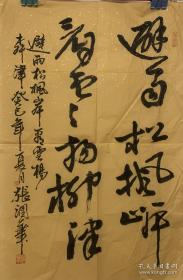 避雨松楓岸
看雲楊柳津
避雨松楓岸 看雲楊
柳津 癸巳年夏月 張潤華